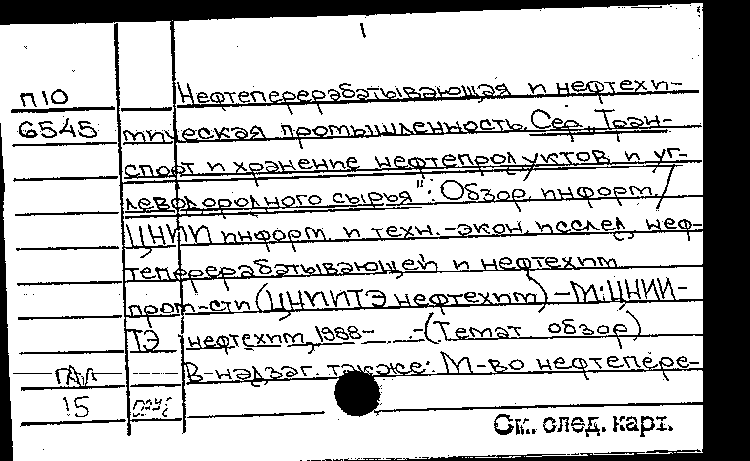 1
П10 Нефтеперерабатывающая и нефтехи-
6545 мическая промышленность. Сер. „Тран-
спорт и хранение нефтепродуктов и уг-
леводородного сырья": Обзор. информ. /
ЦНИИ информ. и техн.-экон. исслед. неф-
теперерабатывающей и нефтехим.
пром-сти (ЦНИИТЭнефтехим) – М.: ЦНИИ-
ТЭ нефтехим, 1988- .-(Темат. обзор)
ГАЛ В надзаг. также: М-во нефтепере-
15
См. след. карт.